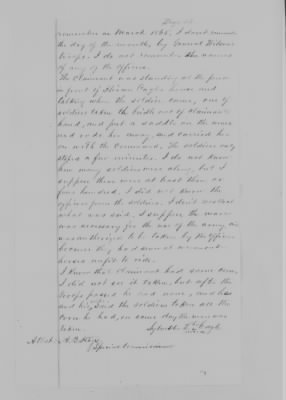 remember in March 1865, I dont remember
the day of the month, by General Wilsons
troops. I do not remember the names
of any of the officers.
The claimant was standing at the
in front of Hiram Cagles house and
talking when the soldiers came, one of
soldiers taken the bridle out of claimants
hand, and put a saddle on the mare
and rode her away, and carried her
on with the Command. The soldiers only
stoped a few minutes. I do not know
how many soldiers were along, but I
suppose there were at least three or
four hundred. I did not know the
officers from the soldiers. I dont recollect
what was said. I suppose the mare
was necessary for the use of the army,
authorized to be taken by the officers
because they had
horses unfit to ride.
I know that claimant had some corn,
I did not see it taken, but after the
troops passed he had none, and he
and his said the soldiers taken all the
corn he had, on same day the mare was
taken.
Cagle
mark
Attest. A. B.
Special Commissioner